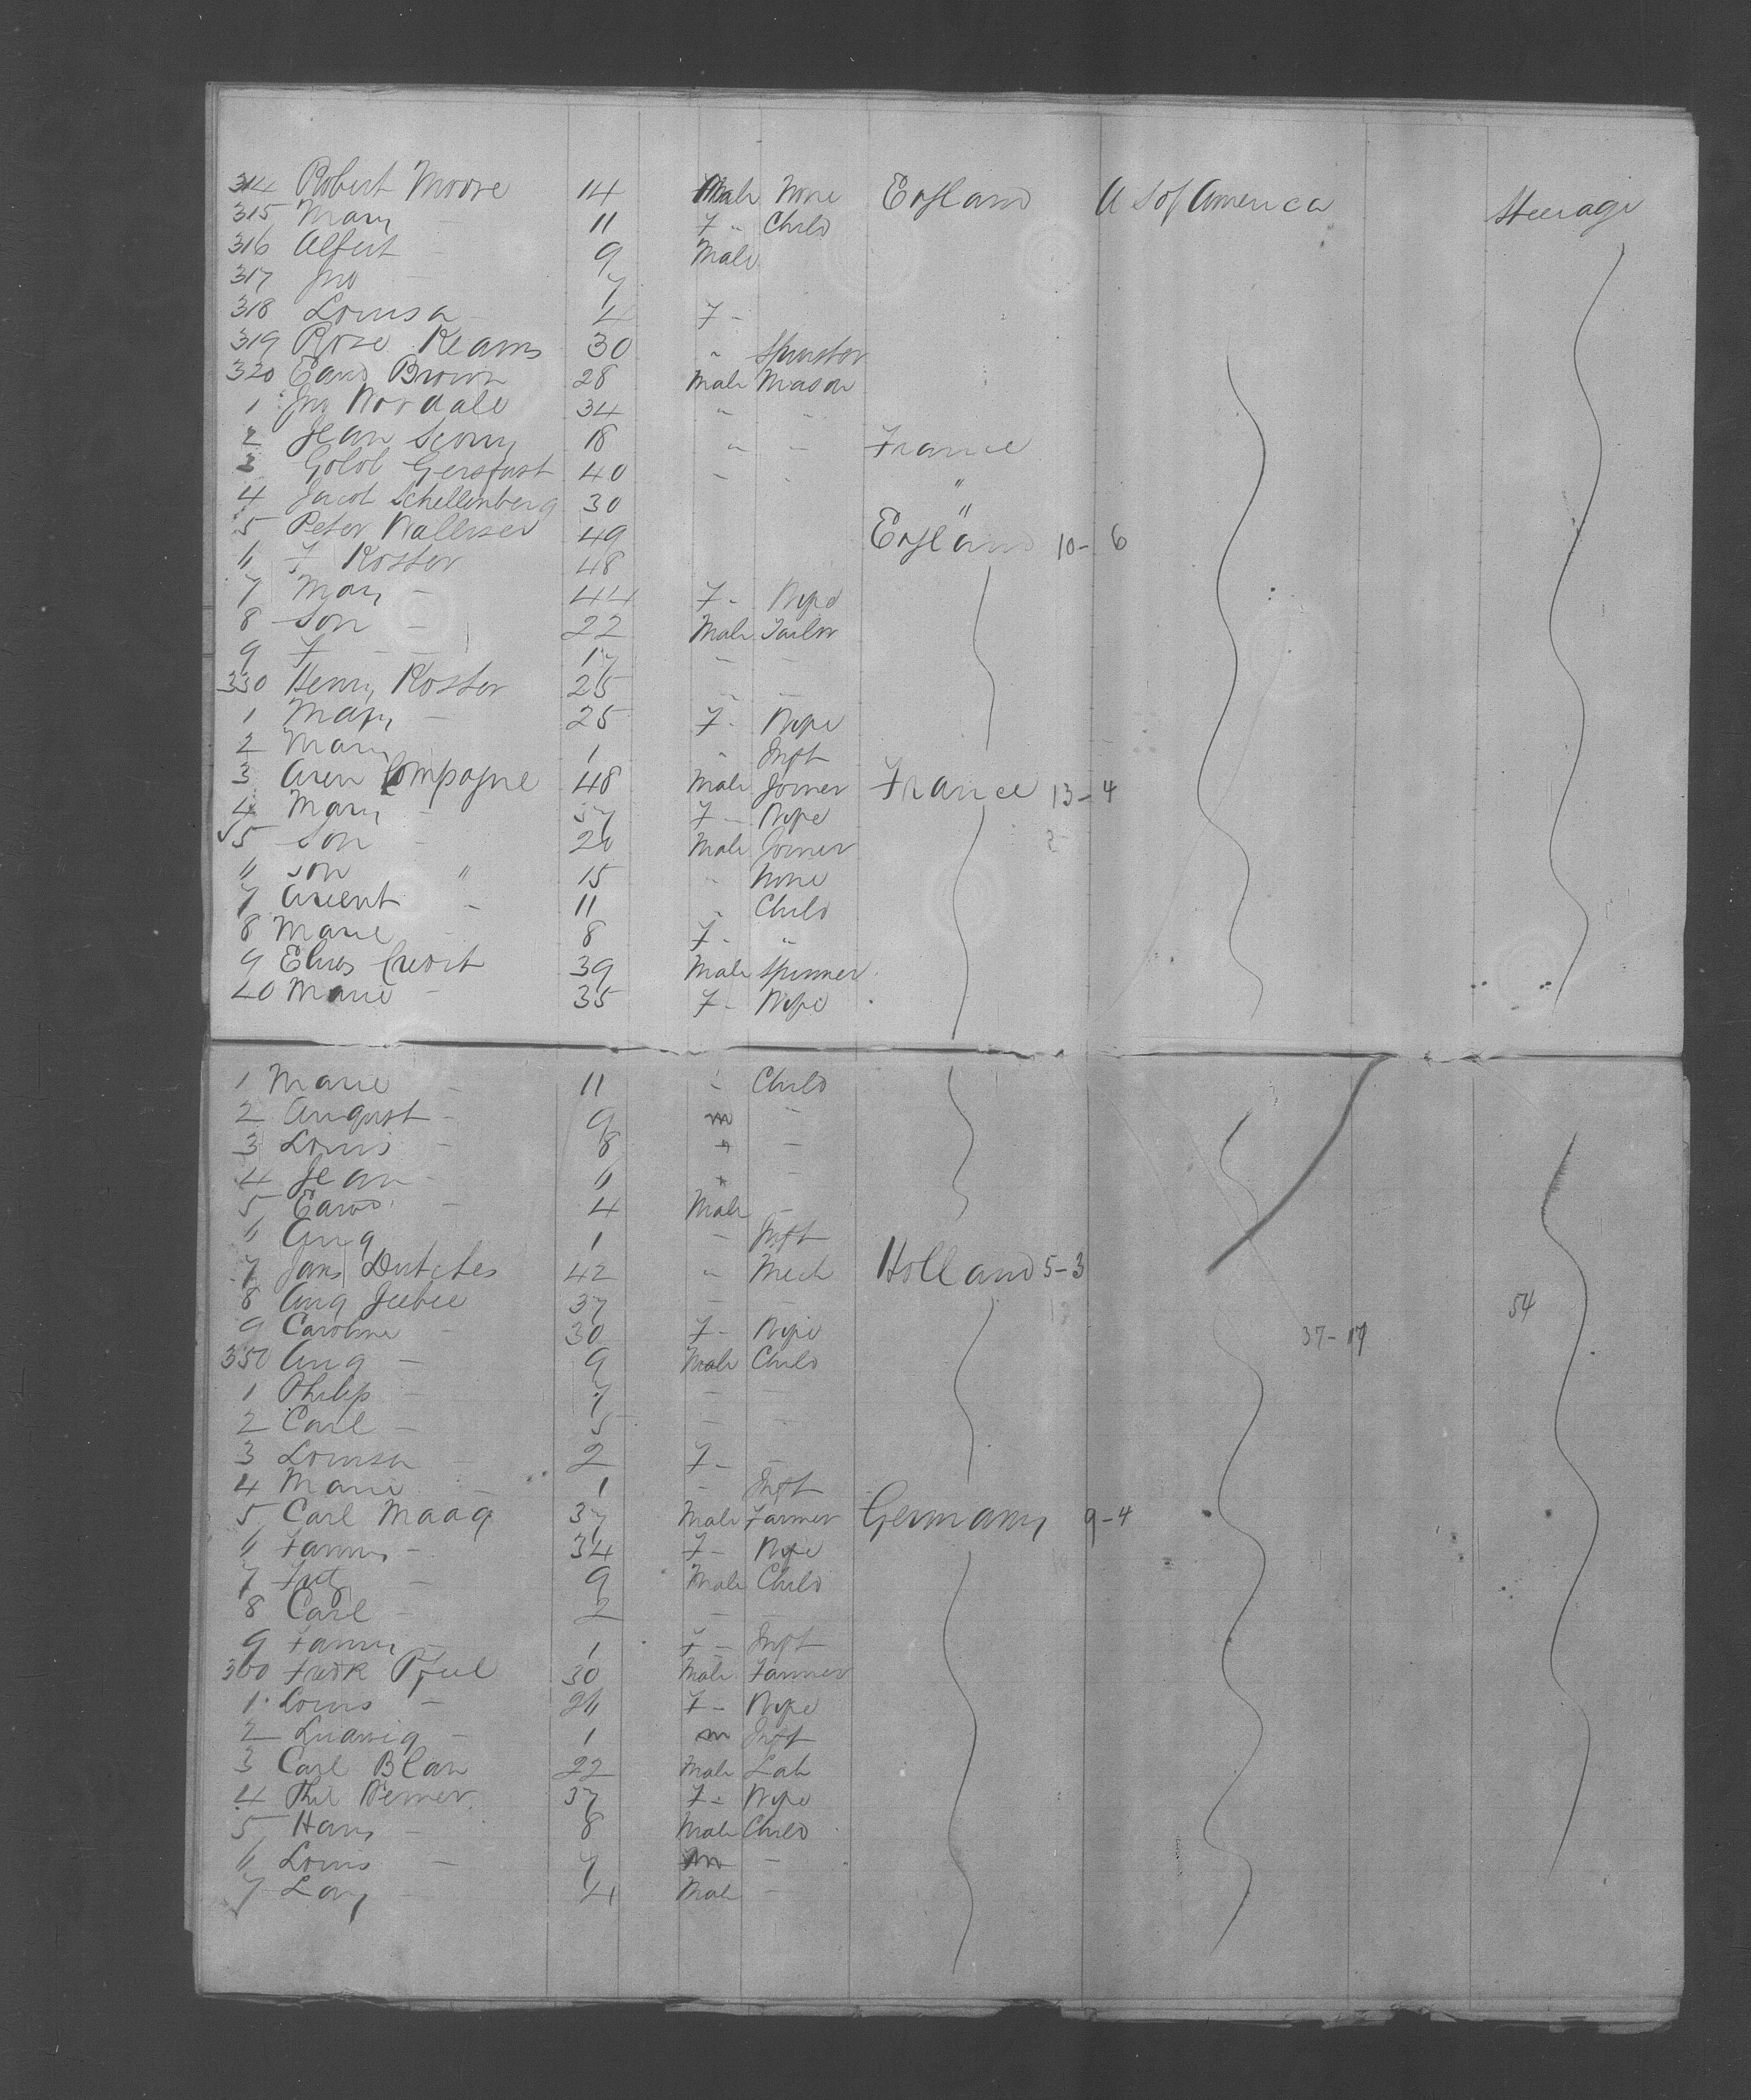 314 Robert Moore 14 Male None England U S of America Steerage
315 Mary - 11 F " Child
316 Alfert - 9 Male
317 Jno - 7
318 Louisa - 4 F -
319 Rose Keams 30 " Spinster
320 Edwd Brown 28 Male Mason
1 Jno Nordale 34 " "
2 Jean 18 " - France
3 Golob 40 - "
4 Jacob Schellenberg 30 "
5 Peter Walliser 49 England 10-6
6 F Koster 48
7 Mary - 44 F - Wife
8 Son - 22 Male Tailor
9 F - - 17 - -
330 Henry Koster 25 - -
1 Mary - 25 F - Wife
2 Mary 1 " Inft
3 Compagne 48 Male Joiner France 13-4
4 Mary - 37 F - Wife
5 Son - 20 Male Joiner
6 Son " 15 - None
7 - 11 " Child
8 Marie - 8 F - "
9 39 Male Spinner
40 Marie - 35 F - Wife
1 Marie - 11 - Child
2 August - 9 m -
3 Louis - 8 " -
4 Jean - 6 " -
5 Edwd - 4 Male -
6 Aug 1 - Inft
7 Jans Dutches 42 " Mech Holland 5-3
8 Aug 37 - - 54
9 Caroline - 30 F - Wife 37-17
350 Aug - 9 Male Child
1 Philip - 7 - -
2 Carl - 5 - -
3 Louisa - 2 F - -
4 Marie - 1 - Inft
5 Carl Maag 37 Male Farmer Germany 9-4
6 Fanny - 34 F - Wife
7 - 9 Male Child
8 Carl - 2 -
9 Fanny - 1 F - Inft
360 Fredk Pfeel 30 Male Farmer
1 Louis - 26 F - Wife
2 Ludwig - 1 m Inft
3 Carl Blau 22 Male Lab
4 Phil Werner 37 F - Wife
5 Hans - 8 Male Child
6 Louis - 7 m -
7 - 4 Male -